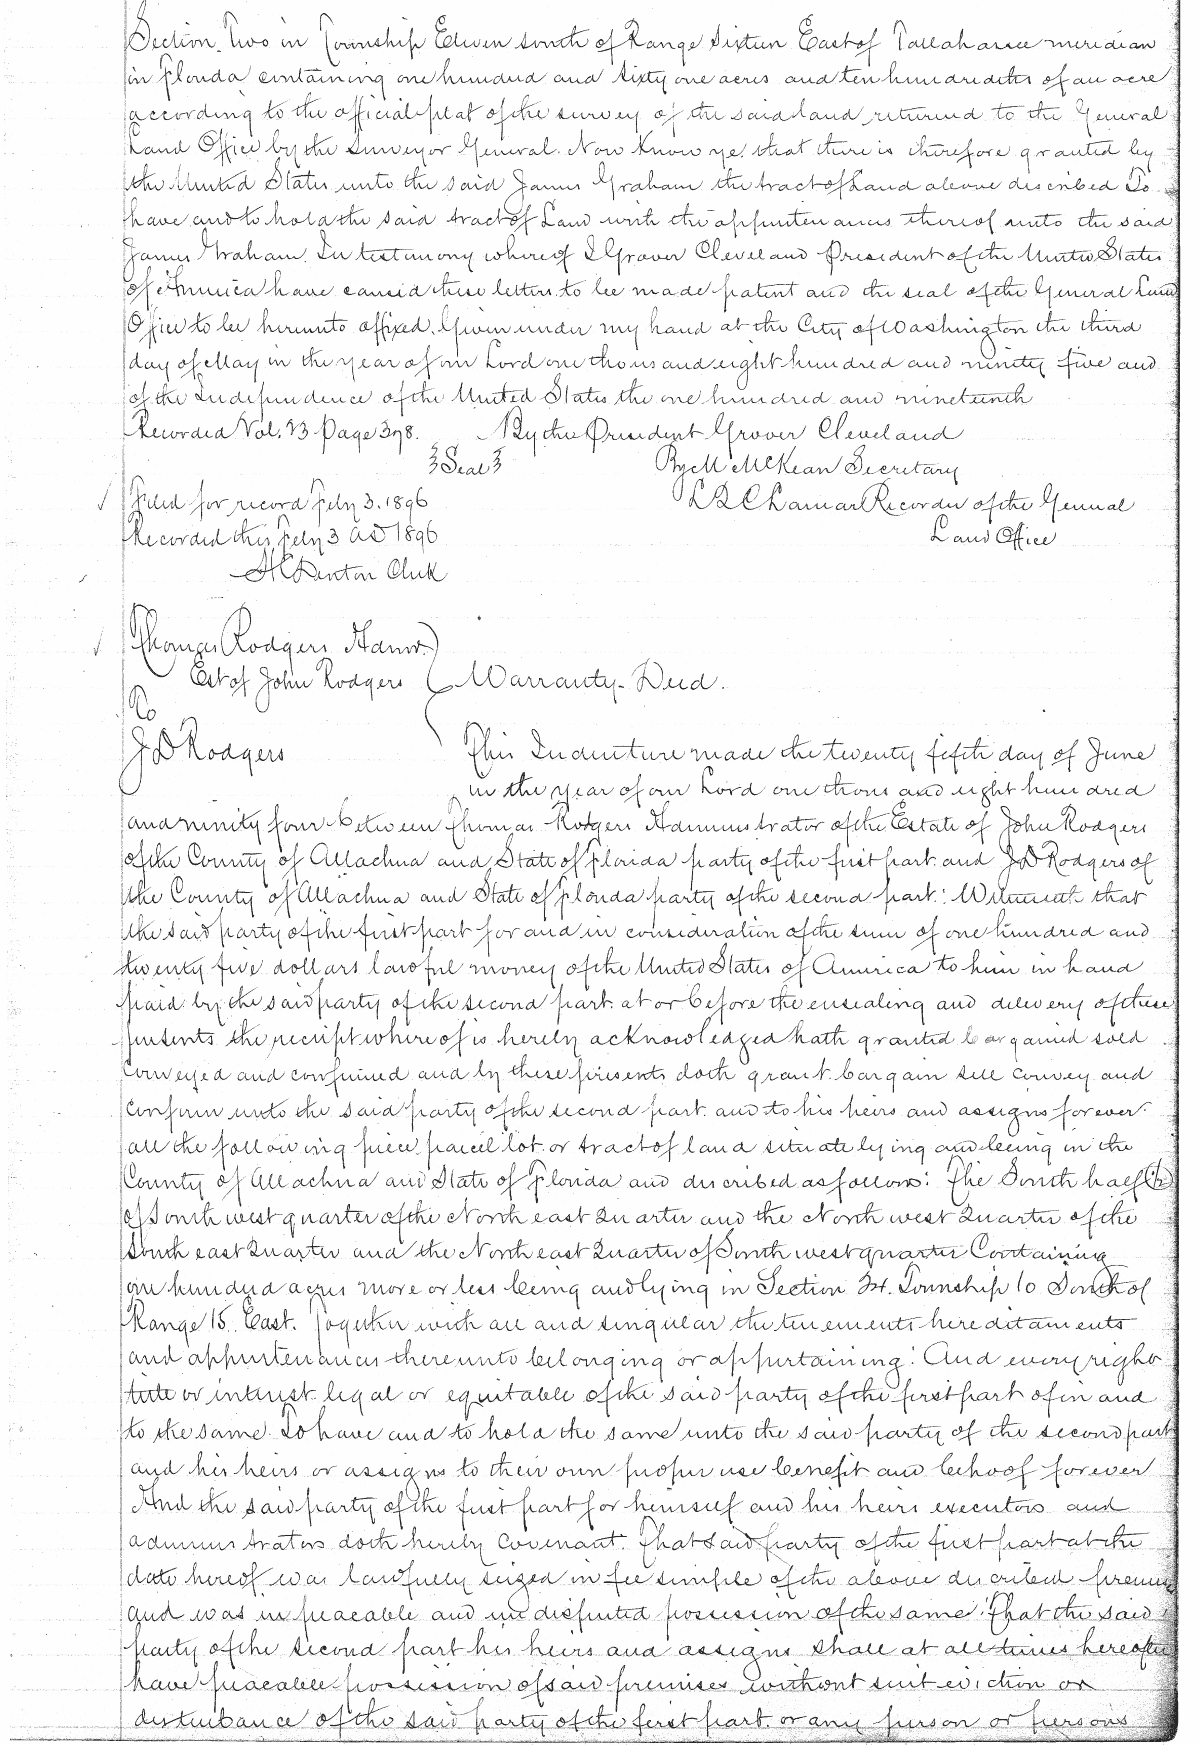 Section Two in Township Eleven South of Range Sixteen East of Tallahassee meridian
in Florida containing one hundred and sixty one acres and ten hundredeths of an acre
according to the official plat of the survey of the said land returned to the General
Land Office by the Surveyor General. Now Know ye, that there is therefore granted by
the United States unto the said James Graham the tract of Land above described To
have and to hold the said tract of Land with the appurtenances thereof unto the said
James Graham. In testamony whereof I Grover Cleveland President of the United States
of America have caused these letters to be made patent and the seal of the General Land
Office to be hereunto affixed. Given under my hand at the City of Washington the third
day of May in the year of our Lord one thousand eight hundred and ninety five and
of the Independence of the United States the one hundred and nineteenth
Recorded Vol. 13 Page 378. By the President Grover Cleveland
Seal By M McKean Secretary
Filed for record Feby 3. 1896 L Q C Lamar Recorder of the General
Recorded this Feby 3 AD 1896 Land Office
H C Denton Clerk
Thomas Rodgers Admr.
Est of John Rodgers Warranty-Deed.
To
J D Rodgers This Indenture made the twenty fifth day of June
in the year of our Lord one thousand eight hundred
and ninity four between Thomas Rodgers Administrator of the Estate of John Rodgers
of the County of Allachua and State of Florida party of the first part and J D Rodgers of
the County of Allachua and State of Florida party of the second part: Witnesseth that
the said party of the first part for and in consideration of the sum of one hundred and
twenty five dollars lawful money of the United States of America to him in hand
paid by the said party of the second part at or before the ensealing and delivery of these
presents the receipt whereof is hereby acknowledged hath granted bargained sold
conveyed and confirmed and by these presents doth grant bargain sell convey and
confirm unto the said party of the second part and to his heirs and assigns forever
all the following piece parcel lot or tract of land situate lying and being in the
County of Allachua and State of Florida and described as follows: The South half (½)
of South west quarter of the North east Quarter and the North west Quarter of the
South east Quarter and the North east Quarter of South west quarter Containing
one hundred acres more or less being and lying in Section 34. Township 10 South of
Range 15 East. Together with all and singular the tenements hereditaments
and appurtenances thereunto belonging or appurtaining: And every right
title or interest legal or equitable of the said party of the first part of in and
to the same To have and to hold the same unto the said party of the second part
and his heirs or assigns to their own proper use benefit and behoof forever
And the said party of the first part for himself and his heirs executors and
administrators doth hereby covenant. That said party of the first part at the
date hereof was lawfully seized in fee simple of the above described premises
and was in peacable and undisputed possession of the same. That the said
party of the second part his heirs and assigns shall at all times hereafter
have peacable possession of said premises without suit eviction or
disturbance of the said party of the first part or any person or persons